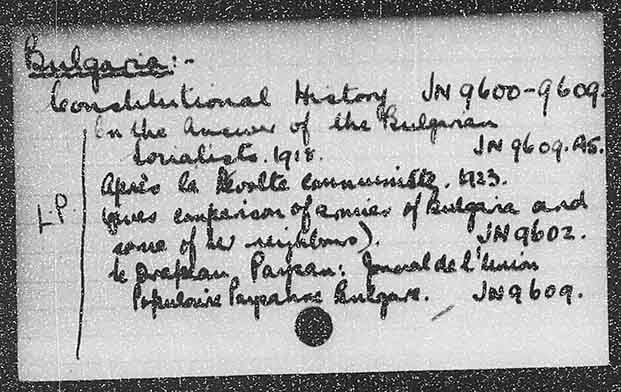 Bulgaria:-
Constitutional History JN 9600-9609.
On the Answer of the Bulgarian
Socialists. 1918. JN 9609.A5.
Après la Révolte communiste. 1923.
L.P.
(gives comparison of armies of Bulgaria and
some of her neighbours). JN 9602.
le Drapeau Paysan: Journal de l'Union
Populaire Paysanne Bulgare. JN 9609.